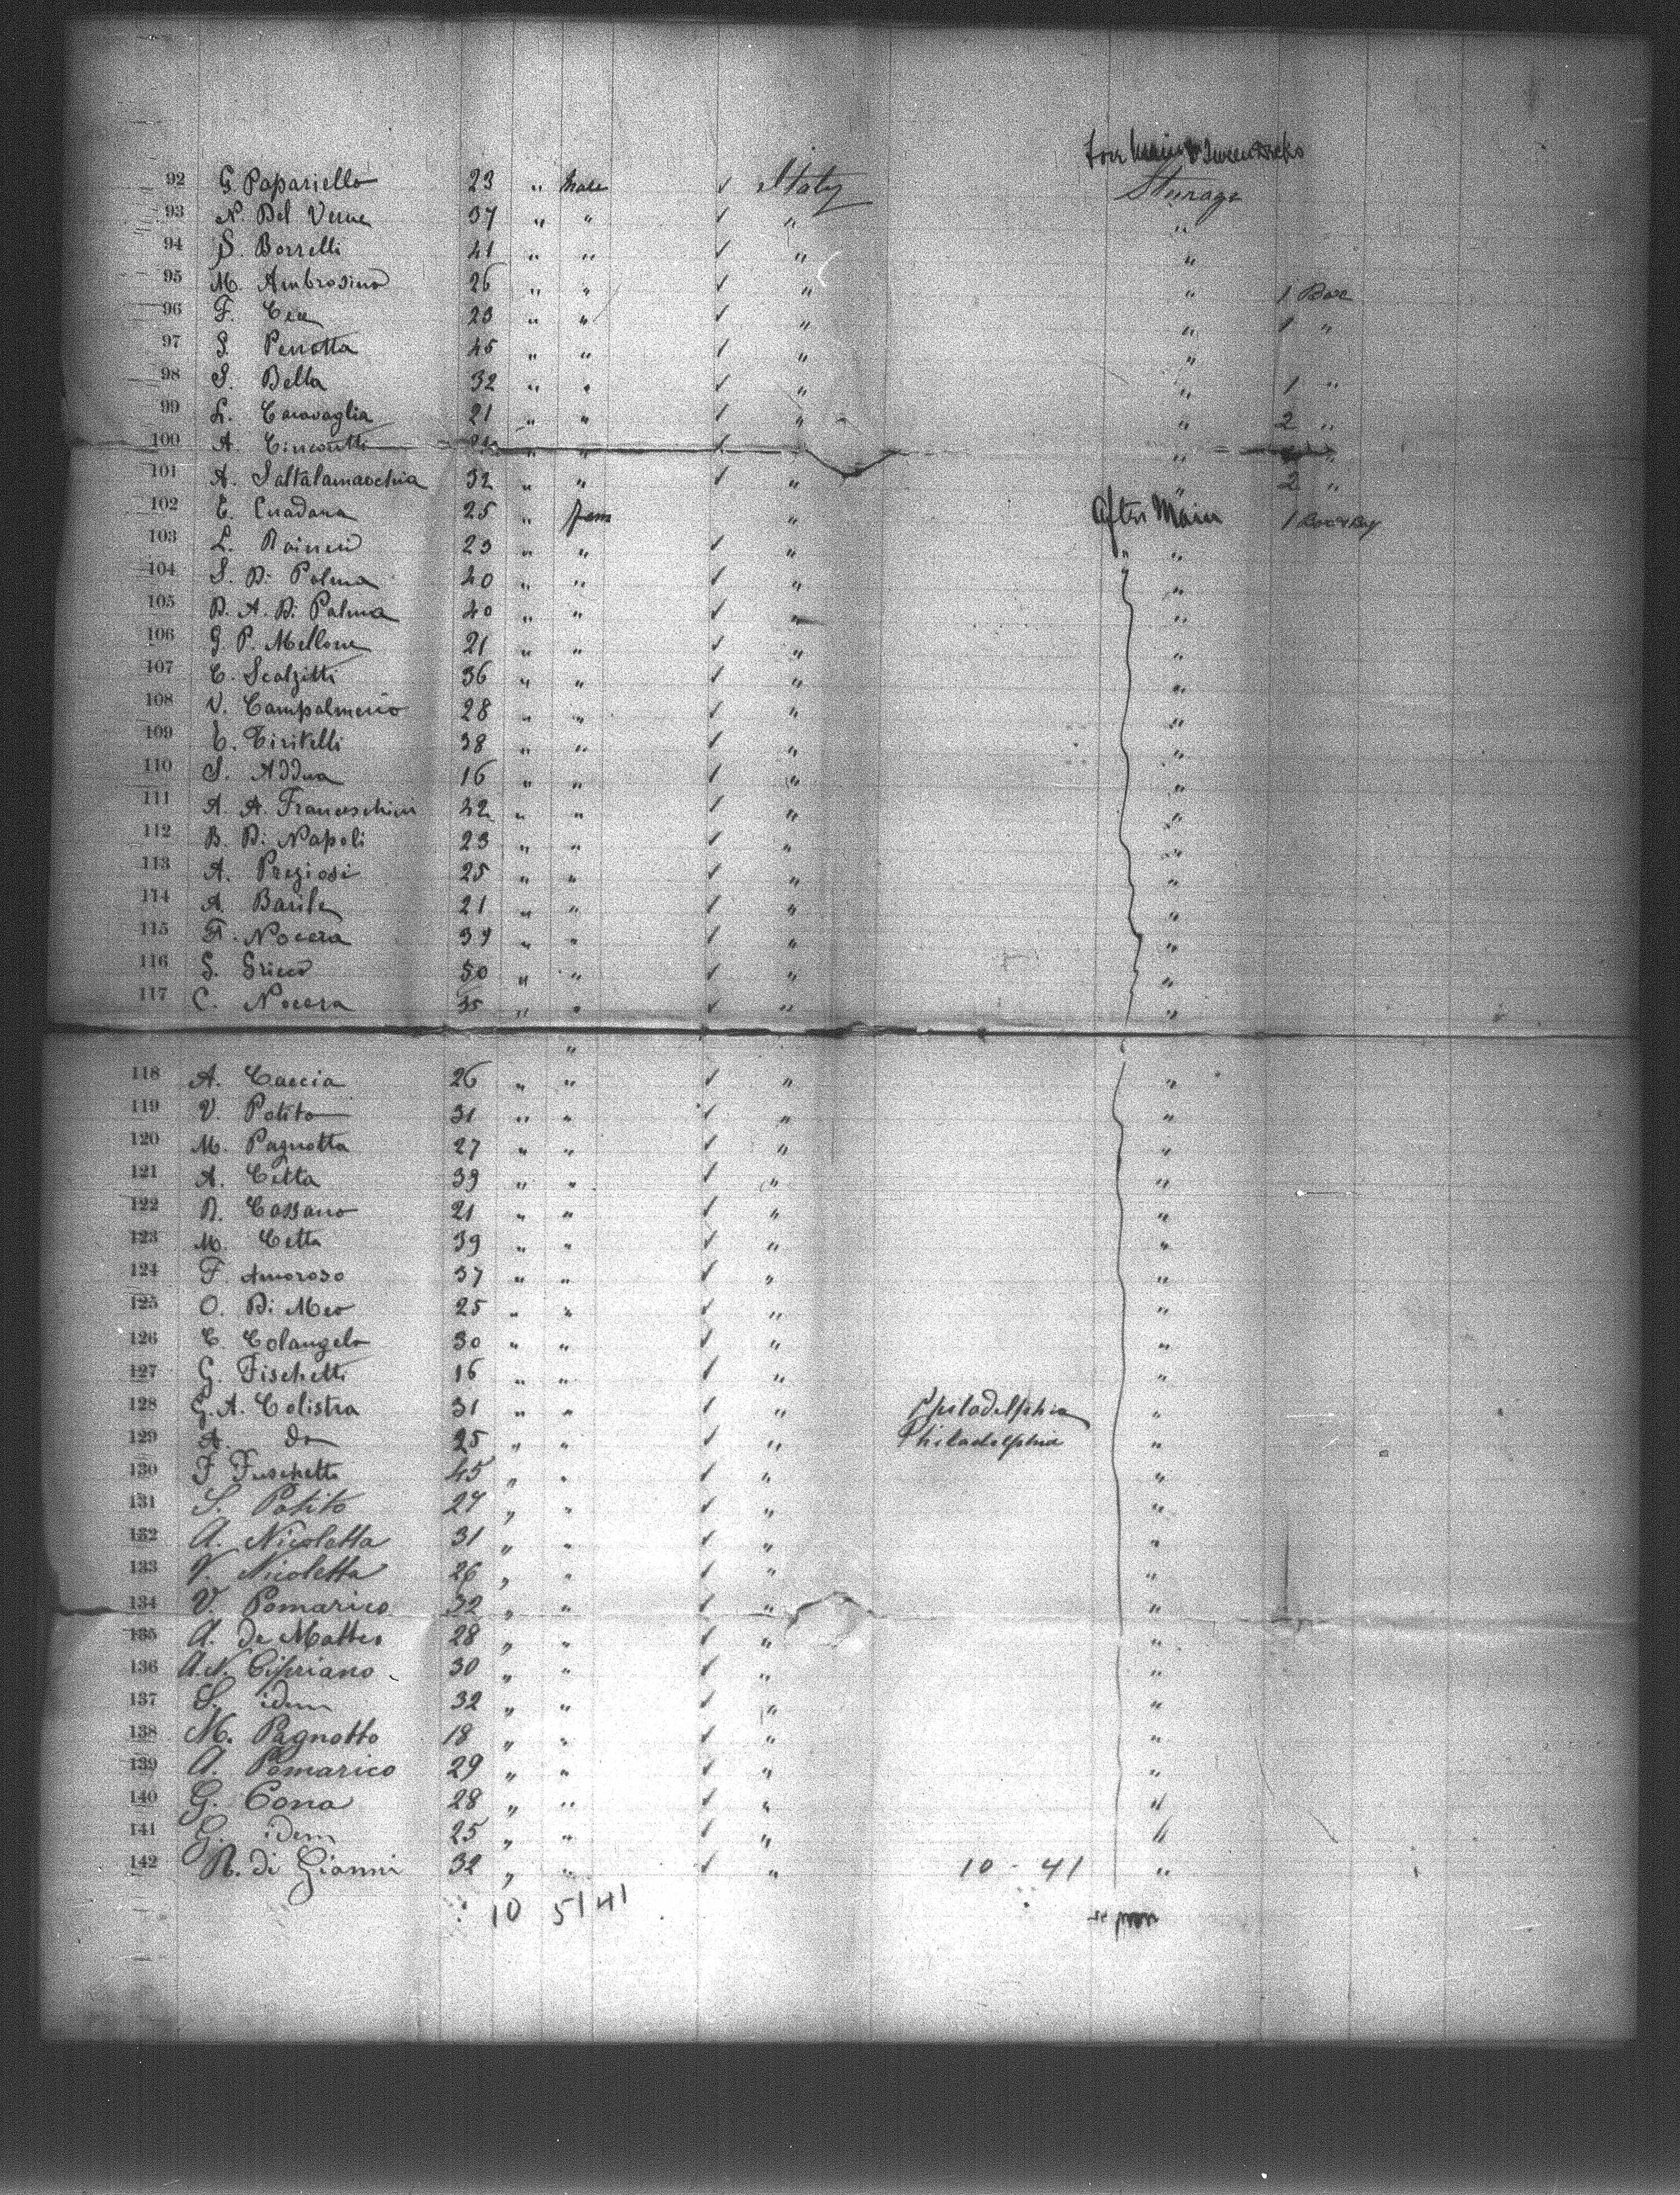 Steerage
92 G. Papariello 23 " Male ✓ Italy
93 N. Del Verme 37 " " ✓ " "
94 S. Borrelli 41 " " ✓ " "
95 M. Ambrosino 26 " " ✓ " " 1 Box
96 F. 23 " " ✓ " " 1 "
97 S. Perrotta 45 " " ✓ " "
98 S. Bella 32 " " ✓ " " 1 "
99 L. Caravaglia 21 " " ✓ " " 2 "
100 A. " " ✓ " "
101 A. Saltalamacchia 32 " " ✓ " " 2 "
102 E. Cuadana 25 " fem " After Main
103 L. Rainieri 23 " " ✓ " " "
104 S. Di Palma 40 " " ✓ " "
105 D. A. Di Palma 40 " " ✓ " "
106 G. P. Mellone 21 " " ✓ " "
107 C. Scalzitti 36 " " ✓ " "
108 V. Campalmerio 28 " " ✓ " "
109 C. Ciritelli 38 " " ✓ " "
110 S. Addua 16 " " ✓ " "
111 A. A. Franceschini 22 " " ✓ " "
112 B. Di Napoli 23 " " ✓ " "
113 A. Preziosi 25 " " ✓ " "
114 A. Barile 21 " " ✓ " "
115 F. Nocera 39 " " ✓ " "
116 G. Grieco 50 " " ✓ " "
117 C. Nocera 35 " " ✓ " "
"
118 A. Caccia 26 " " ✓ " "
119 V. Potito 31 " " ✓ " "
120 M. Pagnotta 27 " " ✓ " "
121 A. Cetta 39 " " ✓ " "
122 R. Cassano 21 " " ✓ " "
123 M. Cetta 39 " " ✓ " "
124 F. Amoroso 37 " " ✓ " "
125 O. Di Meo 25 " " ✓ " "
126 C. Colangelo 30 " " ✓ " "
127 G. Fischetti 16 " " ✓ " "
128 G. A. Colistra 31 " " ✓ " Philadelphia "
129 A. do 25 " " ✓ " Philadelphia "
130 F. Fuschetti 45 " " ✓ " "
131 S. Potito 27 " " ✓ " "
132 A. Nicoletta 31 " " ✓ " "
133 V. Nicoletta 26 " " ✓ " "
134 V. Pomarico 32 " " ✓ " "
135 A. de Matteo 28 " " ✓ " "
136 A.N. Cipriano 30 " " ✓ " "
137 S. idem 32 " " ✓ " "
138 M. Pagnotto 18 " " ✓ " "
139 A. Pomarico 29 " " ✓ " "
140 G. Cona 28 " " ✓ " "
141 G. idem 25 " " ✓ " "
142 R. di Gianni 32 " " ✓ " 10 - 41 "
10 51 41